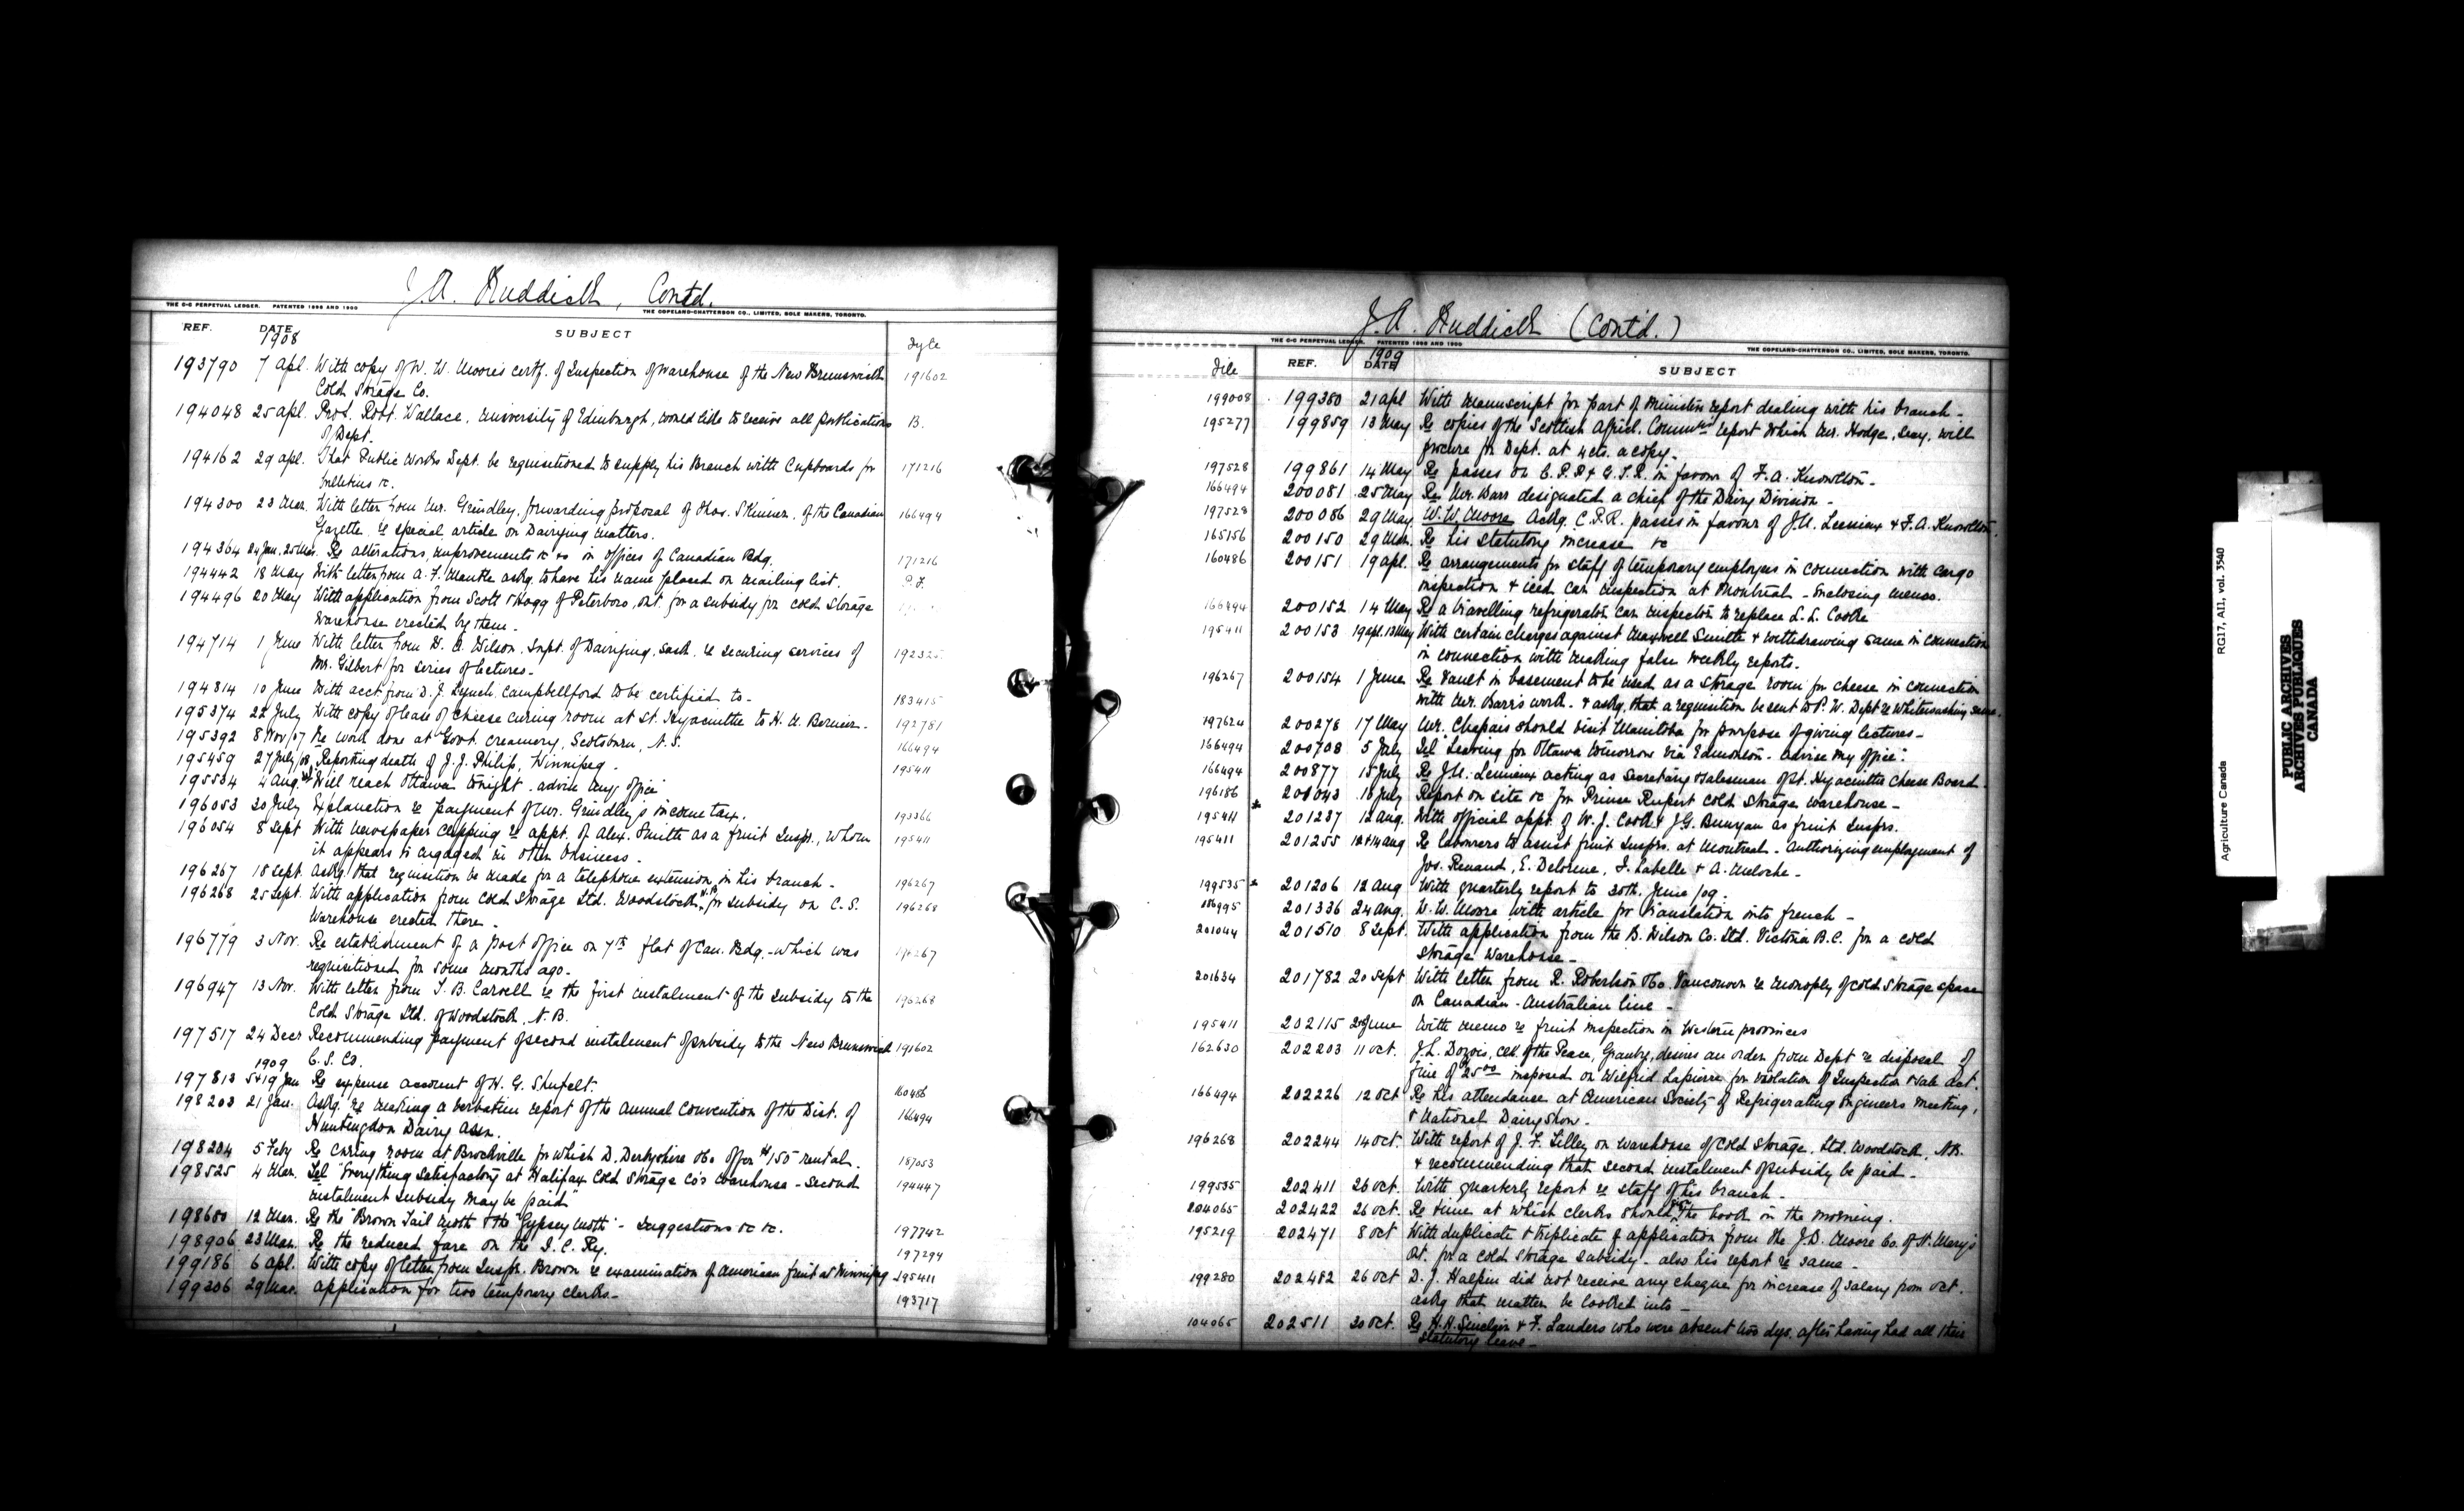 J. A. Ruddick, Contd.
THE C-C PERPETUAL LEDGER. PATENTED 1898 AND 1900
THE COPELAND-CHATTERSON CO., LIMITED, SOLE MAKERS, TORONTO.
REF. DATE SUBJECT Fyle
1908
193790 7 Apl. With copy of W. W. Moore's certf. of Inspection of Warehouse of the New Brunswick 191602
Cold Storage Co.
194048 25 Apl. Prof. Robt. Wallace, University of Edinburgh, would like to receive all publications B.
of Dept.
194162 29 Apl. That Public Works Dept. be requisitioned to supply his Branch with Cupboards for 171216
bulletins &c.
194300 23 Mar. With letter from Mr. Grindley, forwarding proposal of Thos. Skinner, of the Canadian 166494
Gazette, re special article on Dairying matters.
194364 24 Jan. 25 Mar. Re alterations, improvements &c in offices of Canadian Bdg. 171216
194442 18 May With letter from A. F. Mantle askg. to have his name placed on mailing list. P.F.
194496 20 May With application from Scott & Hogg of Peterboro, Ont. for a subsidy for cold storage
Warehouse erected by them.
194714 1 June With letter from W. A. Wilson, Supt. of Dairying, Sask. re securing services of 192325
Mr. Gilbert for series of lectures.
194814 10 June With acct from D. J. Lynch Campbellford to be certified to - 183415
195374 22 July With copy of lease of cheese curing room at St. Hyacinthe to H. A. Bernier. 192781
195392 8 Nov/07 Re work done at Govt. creamery, Scotsburn, N.S. 166494
195459 27 July/08 Reporting death of J. J. Philip, Winnipeg. 195411
195534 4 Aug. Tel "Will reach Ottawa tonight. advise my office"
196053 30 July Explanation re payment of Mr. Grindley's income tax. 193366
196054 8 Sept With newspaper clipping re appt. of Alex. Smith as a fruit Inspr., whom 195411
it appears is engaged in other business.
196267 18 Sept. Askg. that requisition be made for a telephone extension in his branch - 196267
196268 25 Sept. With application from Cold Storage Ltd. Woodstock, N.B. for subsidy on C.S. 196268
Warehouse erected there.
196779 3 Nov. Re establishment of a post office on 7th flat of Can. Bdg. - which was 196267
requisitioned for some months ago.
196947 13 Nov. With letter from F. B. Carvell re the first instalment of the subsidy to the 196268
Cold Storage Ltd. of Woodstock, N.B.
197517 24 Decr Recommending payment of second instalment of subsidy to the New Brunswick 191602
1909 C. S. Co.
197813 5 & 19 Jan Re expense account of H. G. Shufelt. 160486
198203 21 Jan. Askg. re making a verbatim report of the Annual Convention of the Dist. of 166494
Huntingdon Dairy Assn.
198204 5 Feby Re Curing room at Brockville for which D. Derbyshire &Co. offer $150 rental. 187053
198525 4 Mar. Tel "Everything satisfactory at Halifax Cold Storage Co's warehouse - Second 194447
instalment subsidy may be paid"
198680 12 Mar. Re the "Brown Tail Moth & the "Gypsey Moth" - Suggestions &c &c. 197742
198906 23 Mar. Re the reduced fare on the I. C. Ry. 197294
199186 6 Apl. With copy of letter from Inspr. Brown re examination of American fruit at Winnipeg 195411
199206 29 Mar. Application for two temporary clerks - 193717
J. A. Ruddick (Cont'd.)
THE C-C PERPETUAL LEDGER. PATENTED 1898 AND 1900
THE COPELAND-CHATTERSON CO., LIMITED, SOLE MAKERS, TORONTO.
File REF. 1909 DATE SUBJECT
199008 199380 21 Apl With manuscript for part of Ministers report dealing with his branch -
195277 199859 13 May Re copies of the Scottish Agricl. Commn's report which Mr. Hodge, Secy. will
procure for Dept. at 4cts. a copy.
197528 199861 14 May Re passes on C.P.R & G.T.R. in favour of F. A. Knowlton.
166494 200081 25 May Re Mr. Barr designated a chief of the Dairy Division -
197528 200086 29 May W. W. Moore askg. C.P.R. passes in favour of J. A. Lemieux & F. A. Knowlton.
165156 200150 29 Mar. Re his statutory increase &c
160486 200151 19 Apl. Re arrangements for staff of temporary employees in connection with cargo
inspection & iced car inspection at Montreal - Enclosing memo.
166494 200152 14 May Re a travelling refrigerator car inspector to replace L. L. Cooke
195411 200153 19 Apl. 13 May With certain charges against Maxwell Smith & withdrawing same in connection
in connection with making false weekly reports.
196267 200154 1 June Re Vault in basement to be used as a storage room for cheese in connection
with Mr. Barr's work. & askg. that a requisition be sent to P. W. Dept re Whitewashing same.
197624 200278 17 May Mr. Chapais should visit Manitoba for purpose of giving lectures -
166494 200708 5 July Tel "Leaving for Ottawa tomorrow via Edmonton - advise my office".
166494 200877 15 July Re J. A. Lemieux acting as Secretary & Salesman of St. Hyacinthe Cheese Board.
196186 201043 16 July Report on site &c for Prince Rupert cold storage warehouse -
195411 201237 12 Aug. With official appt. of W. J. Cook & J. G. Bunyan as fruit Insprs.
195411 201255 12 & 14 Aug Re labourers to assist fruit Insprs. at Montreal - Authorizing employment of
Jos. Renaud, E. Delorme, F. Labelle & A. Meloche -
199535 201206 12 Aug With quarterly report to 30th. June /09.
186995 201336 24 Aug. W. W. Moore with article for translation into french -
201044 201510 8 Sept. With application from the B. Wilson Co. Ltd. Victoria B.C. for a cold
Storage Warehouse -
201634 201782 20 Sept With letter from R. Robertson &Co. Vancouver re monopoly of cold storage space
on Canadian - Australian line -
195411 202115 28 June With memo re fruit inspection in Western provinces
162630 202203 11 Oct. J. L. Dozois, Clk. of the Peace, Granby, desires an order from Dept re disposal of
fine of 25.00 imposed on Wilfrid Lapierre for violation of Inspection & Sale Act.
166494 202226 12 Oct Re his attendance at American Society of Refrigerating Engineers meeting,
& National Dairy Show.
196268 202244 14 Oct. With report of J. F. Lilley on warehouse of Cold Storage, Ltd. Woodstock, N.B.
& recommending that second instalment of subsidy be paid -
199535 202411 26 Oct. With quarterly report re staff of his branch -
204065 202422 26 Oct. Re time at which clerks should sign the book in the morning.
195219 202471 8 Oct With duplicate & triplicate of application from the J. D. Moore Co. of St. Mary's
Ont. for a cold storage subsidy - also his report re same -
199280 202482 26 Oct D. J. Halpin did not receive any cheque for increase of salary from Oct.
askg that matter be looked into -
104065 202511 30 Oct. Re H. H. Sinclair & F. Landers who were absent two dys. after having had all their
statutory leave -
Agriculture Canada RG17, A11, vol. 3540
PUBLIC ARCHIVES
ARCHIVES PUBLIQUES
CANADA